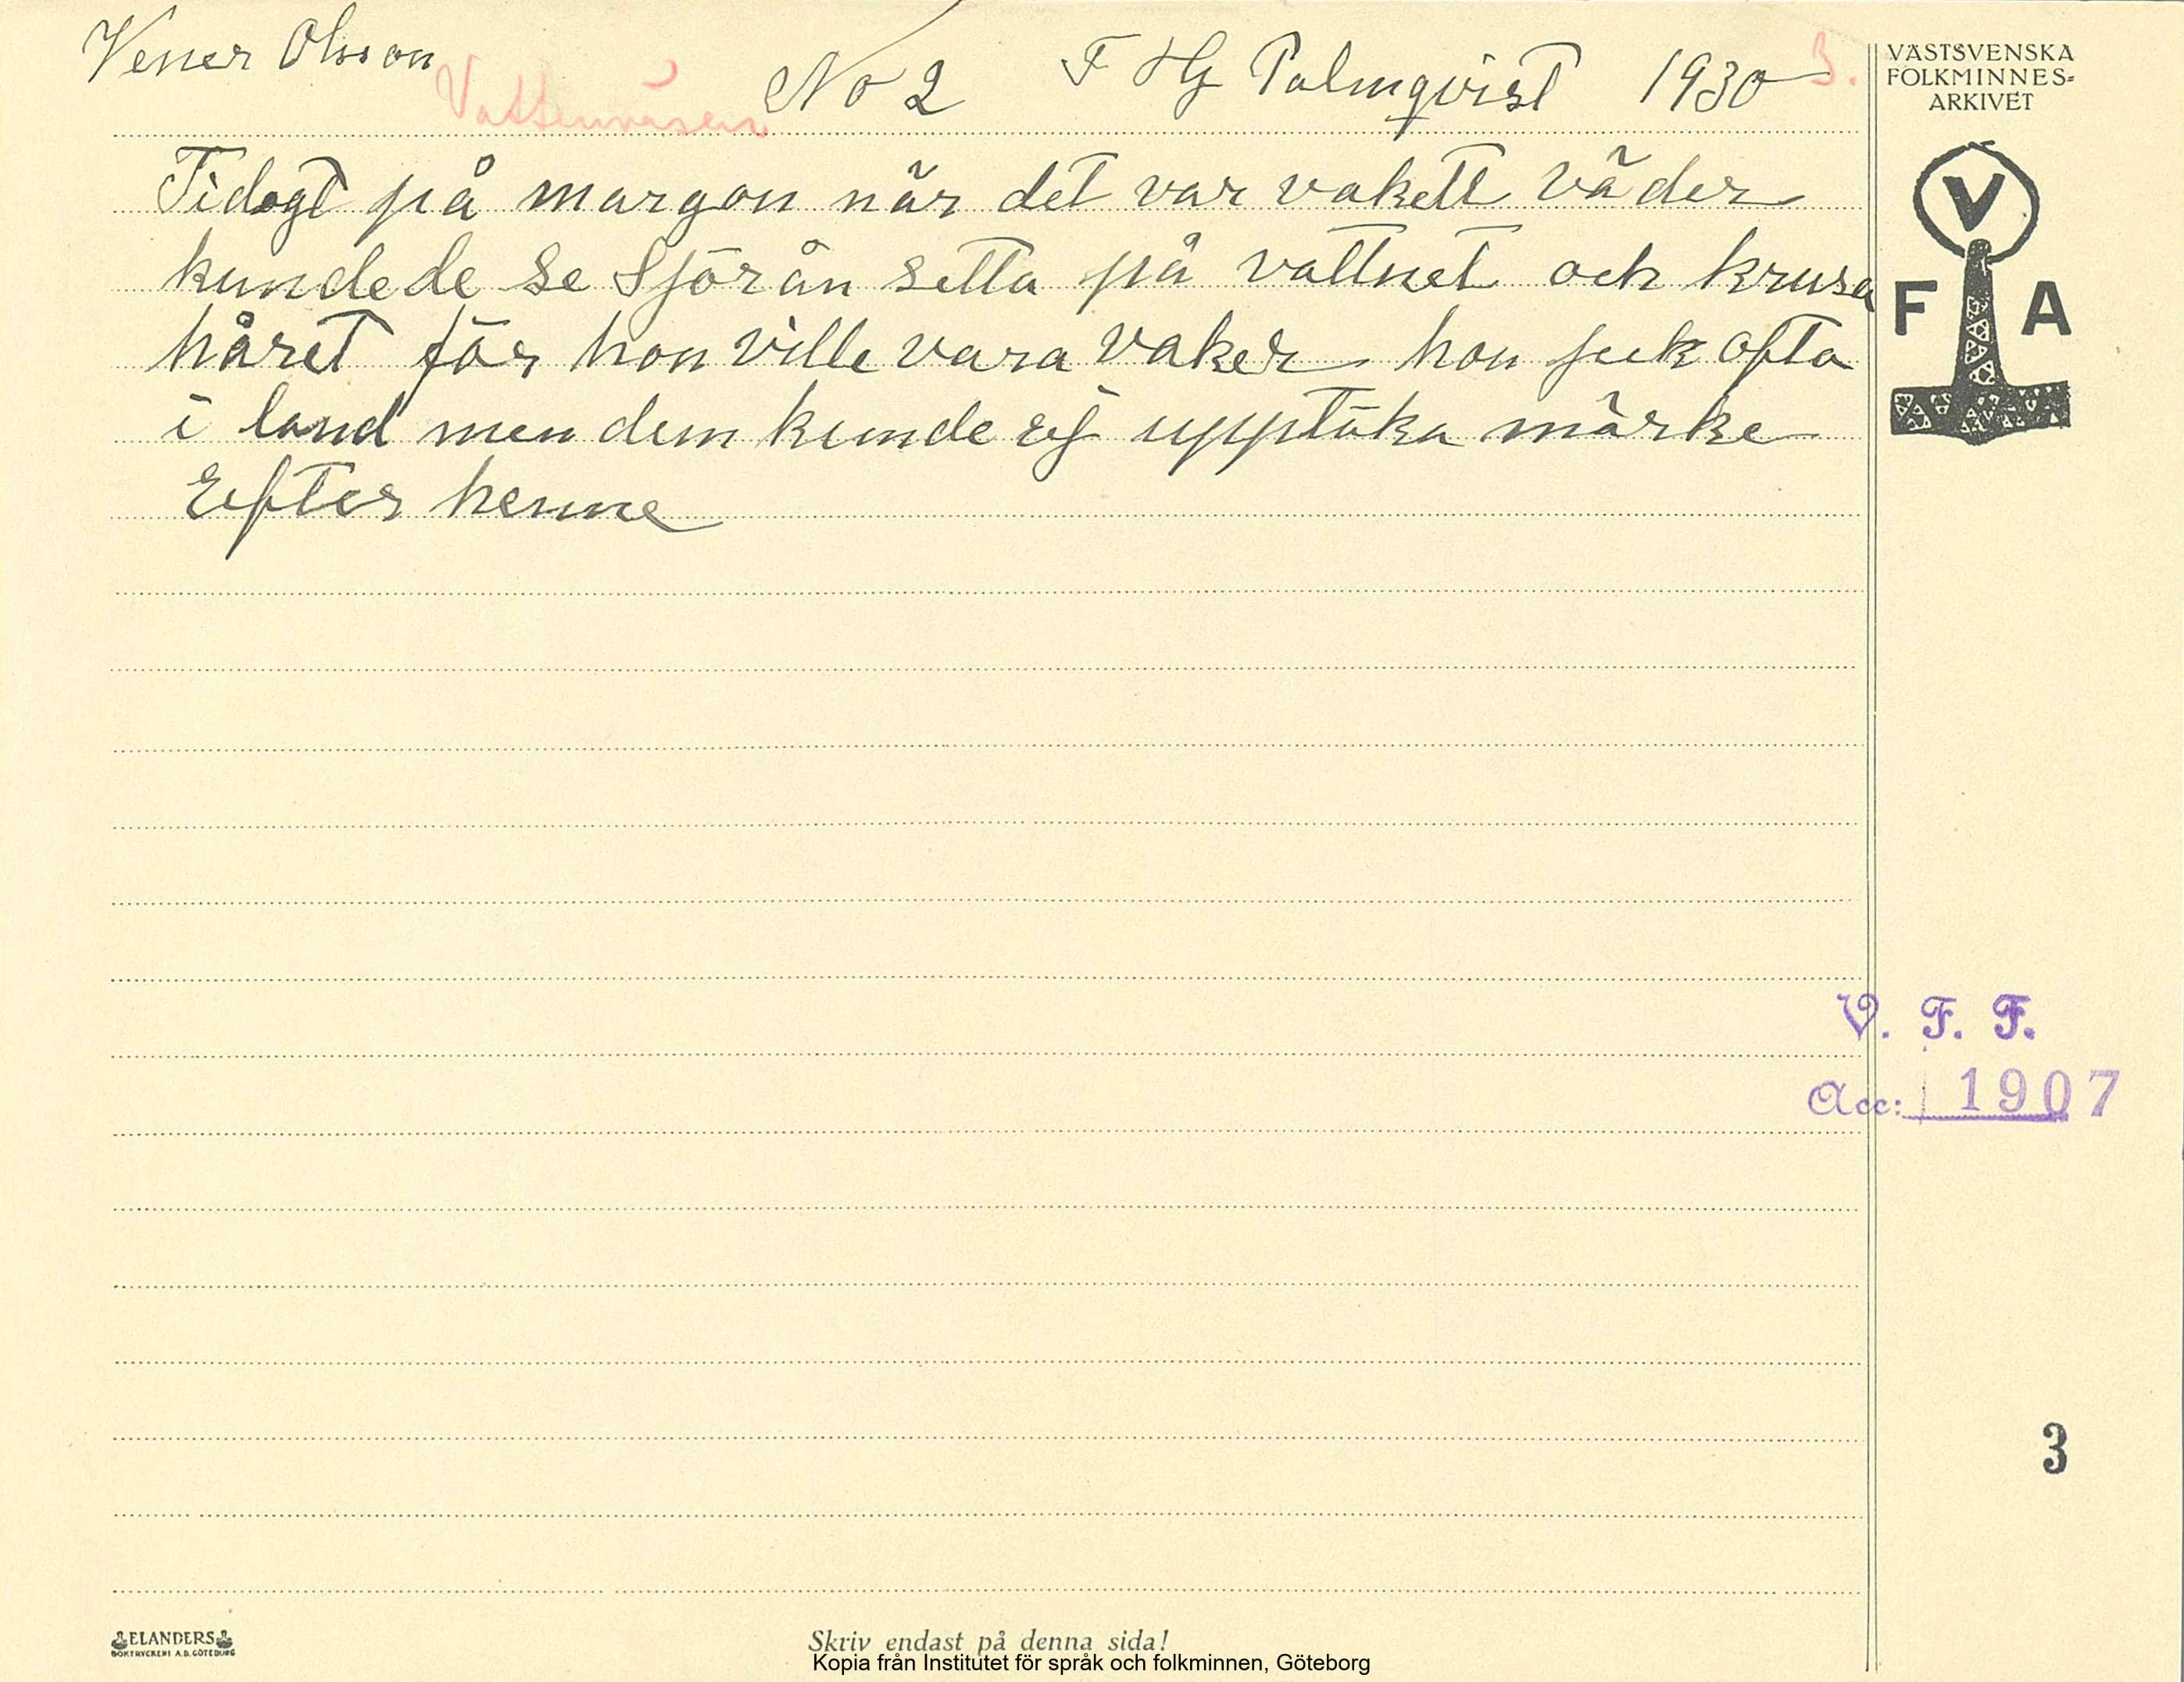 Vener Olsson
Vattenväsen
No 2 F Hj Palmqvist 1930
3.
VÄSTSVENSKA
FOLKMINNES=
ARKIVET
V
F A
Tidogt på margon när det var vakett väder
kundede se Sjörån sitta på vattnet och krusa
håret för hon ville vara vaker hon jeck ofta
i land men dem kunde ej upptäka märke
Efter henne
V. F. F.
Acc: 1907
3
ELANDERS
BOKTRYCKERI A.B. GÖTEBORG
Skriv endast på denna sida!
Kopia från Institutet för språk och folkminnen, Göteborg